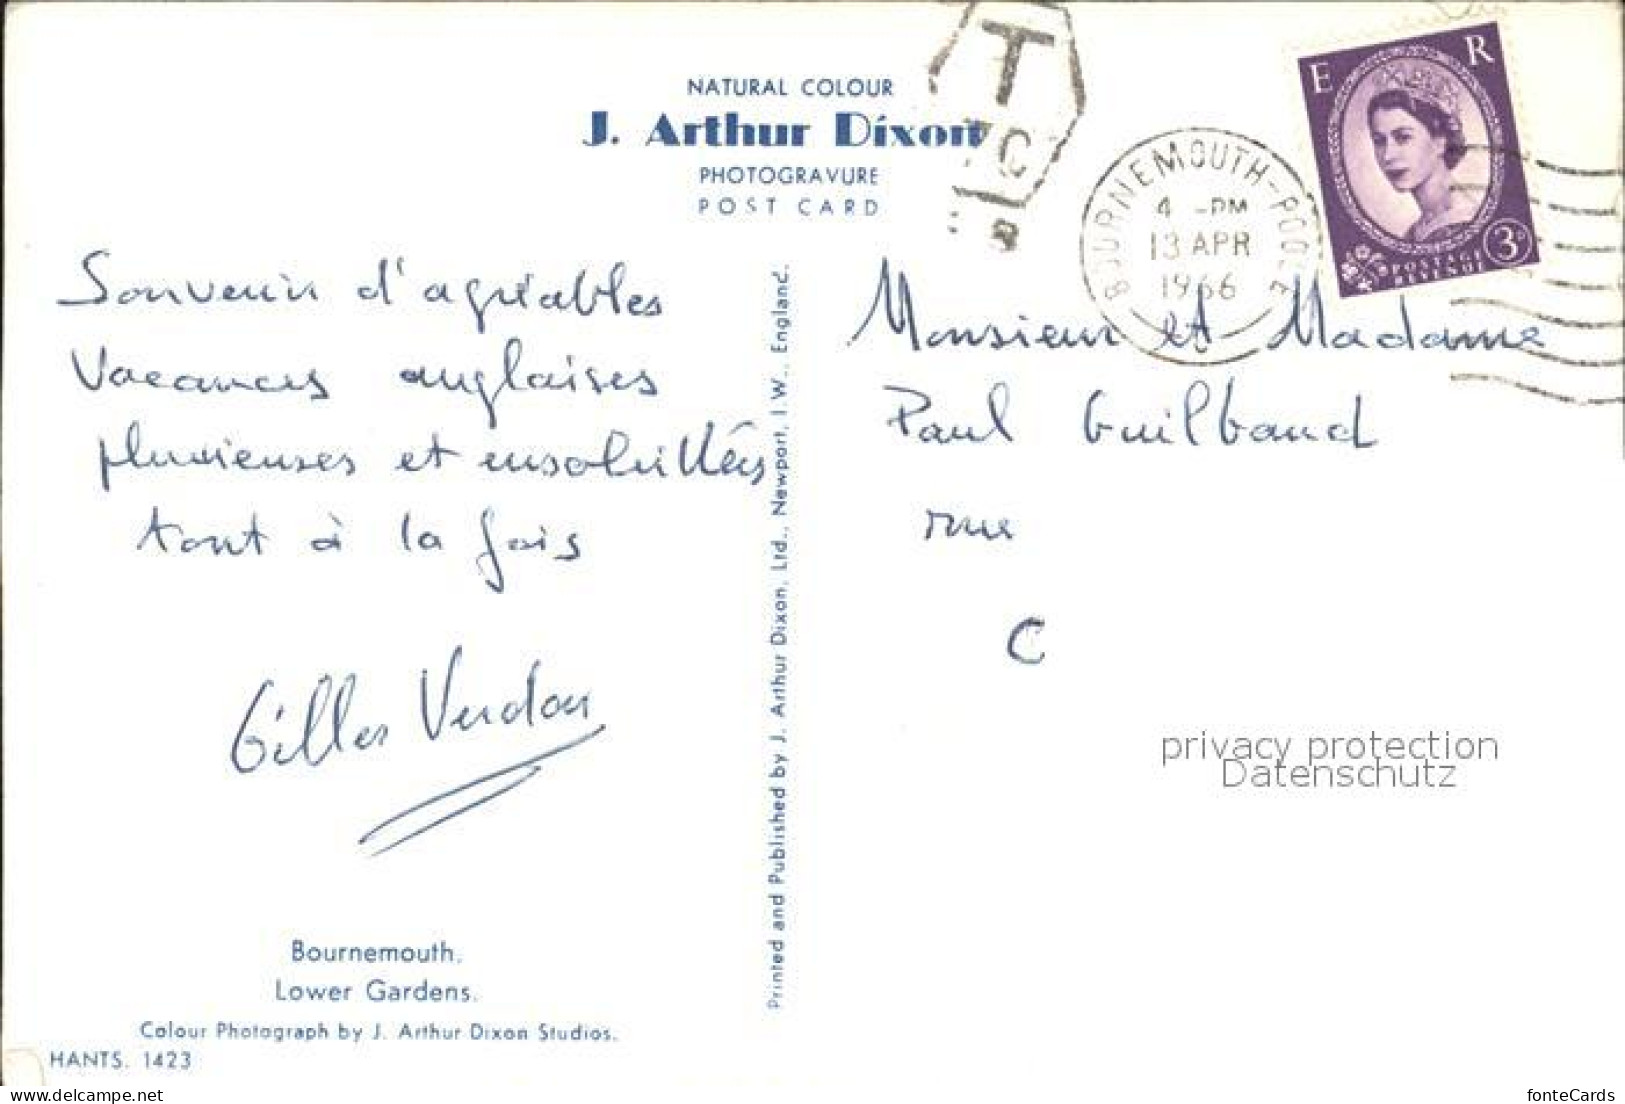 NATURAL COLOUR
J. Arthur Dixon
PHOTOGRAVURE
POST CARD
T
C
BOURNEMOUTH-POOLE
4 -PM
13 APR
1966
E R
POSTAGE
REVENUE
3D
Souvenir d'agréables
Vacances anglaises
pluvieuses et ensoleillées
tout à la fois
Gilles Verdon
Bournemouth.
Lower Gardens.
Colour Photograph by J. Arthur Dixon Studios.
HANTS. 1423
Printed and Published by J. Arthur Dixon, Ltd., Newport, I.W., England.
Monsieur et Madame
Paul Guilbaud
rue
C
privacy protection
Datenschutz
www.delcampe.net
fonteCards